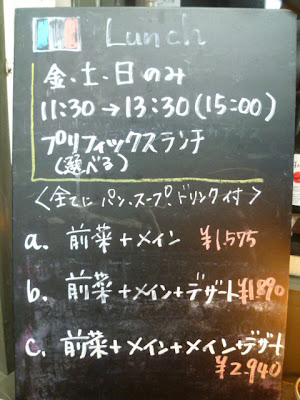 Lunch
金・土・日のみ
11:30→13:30(15:00)
プリフィックスランチ
(選べる)
<全てに パン、スープ、ドリンク付>
a. 前菜+メイン ¥1,575
b. 前菜+メイン+デザート ¥1890
c. 前菜+メイン+メイン+デザート
¥2,940